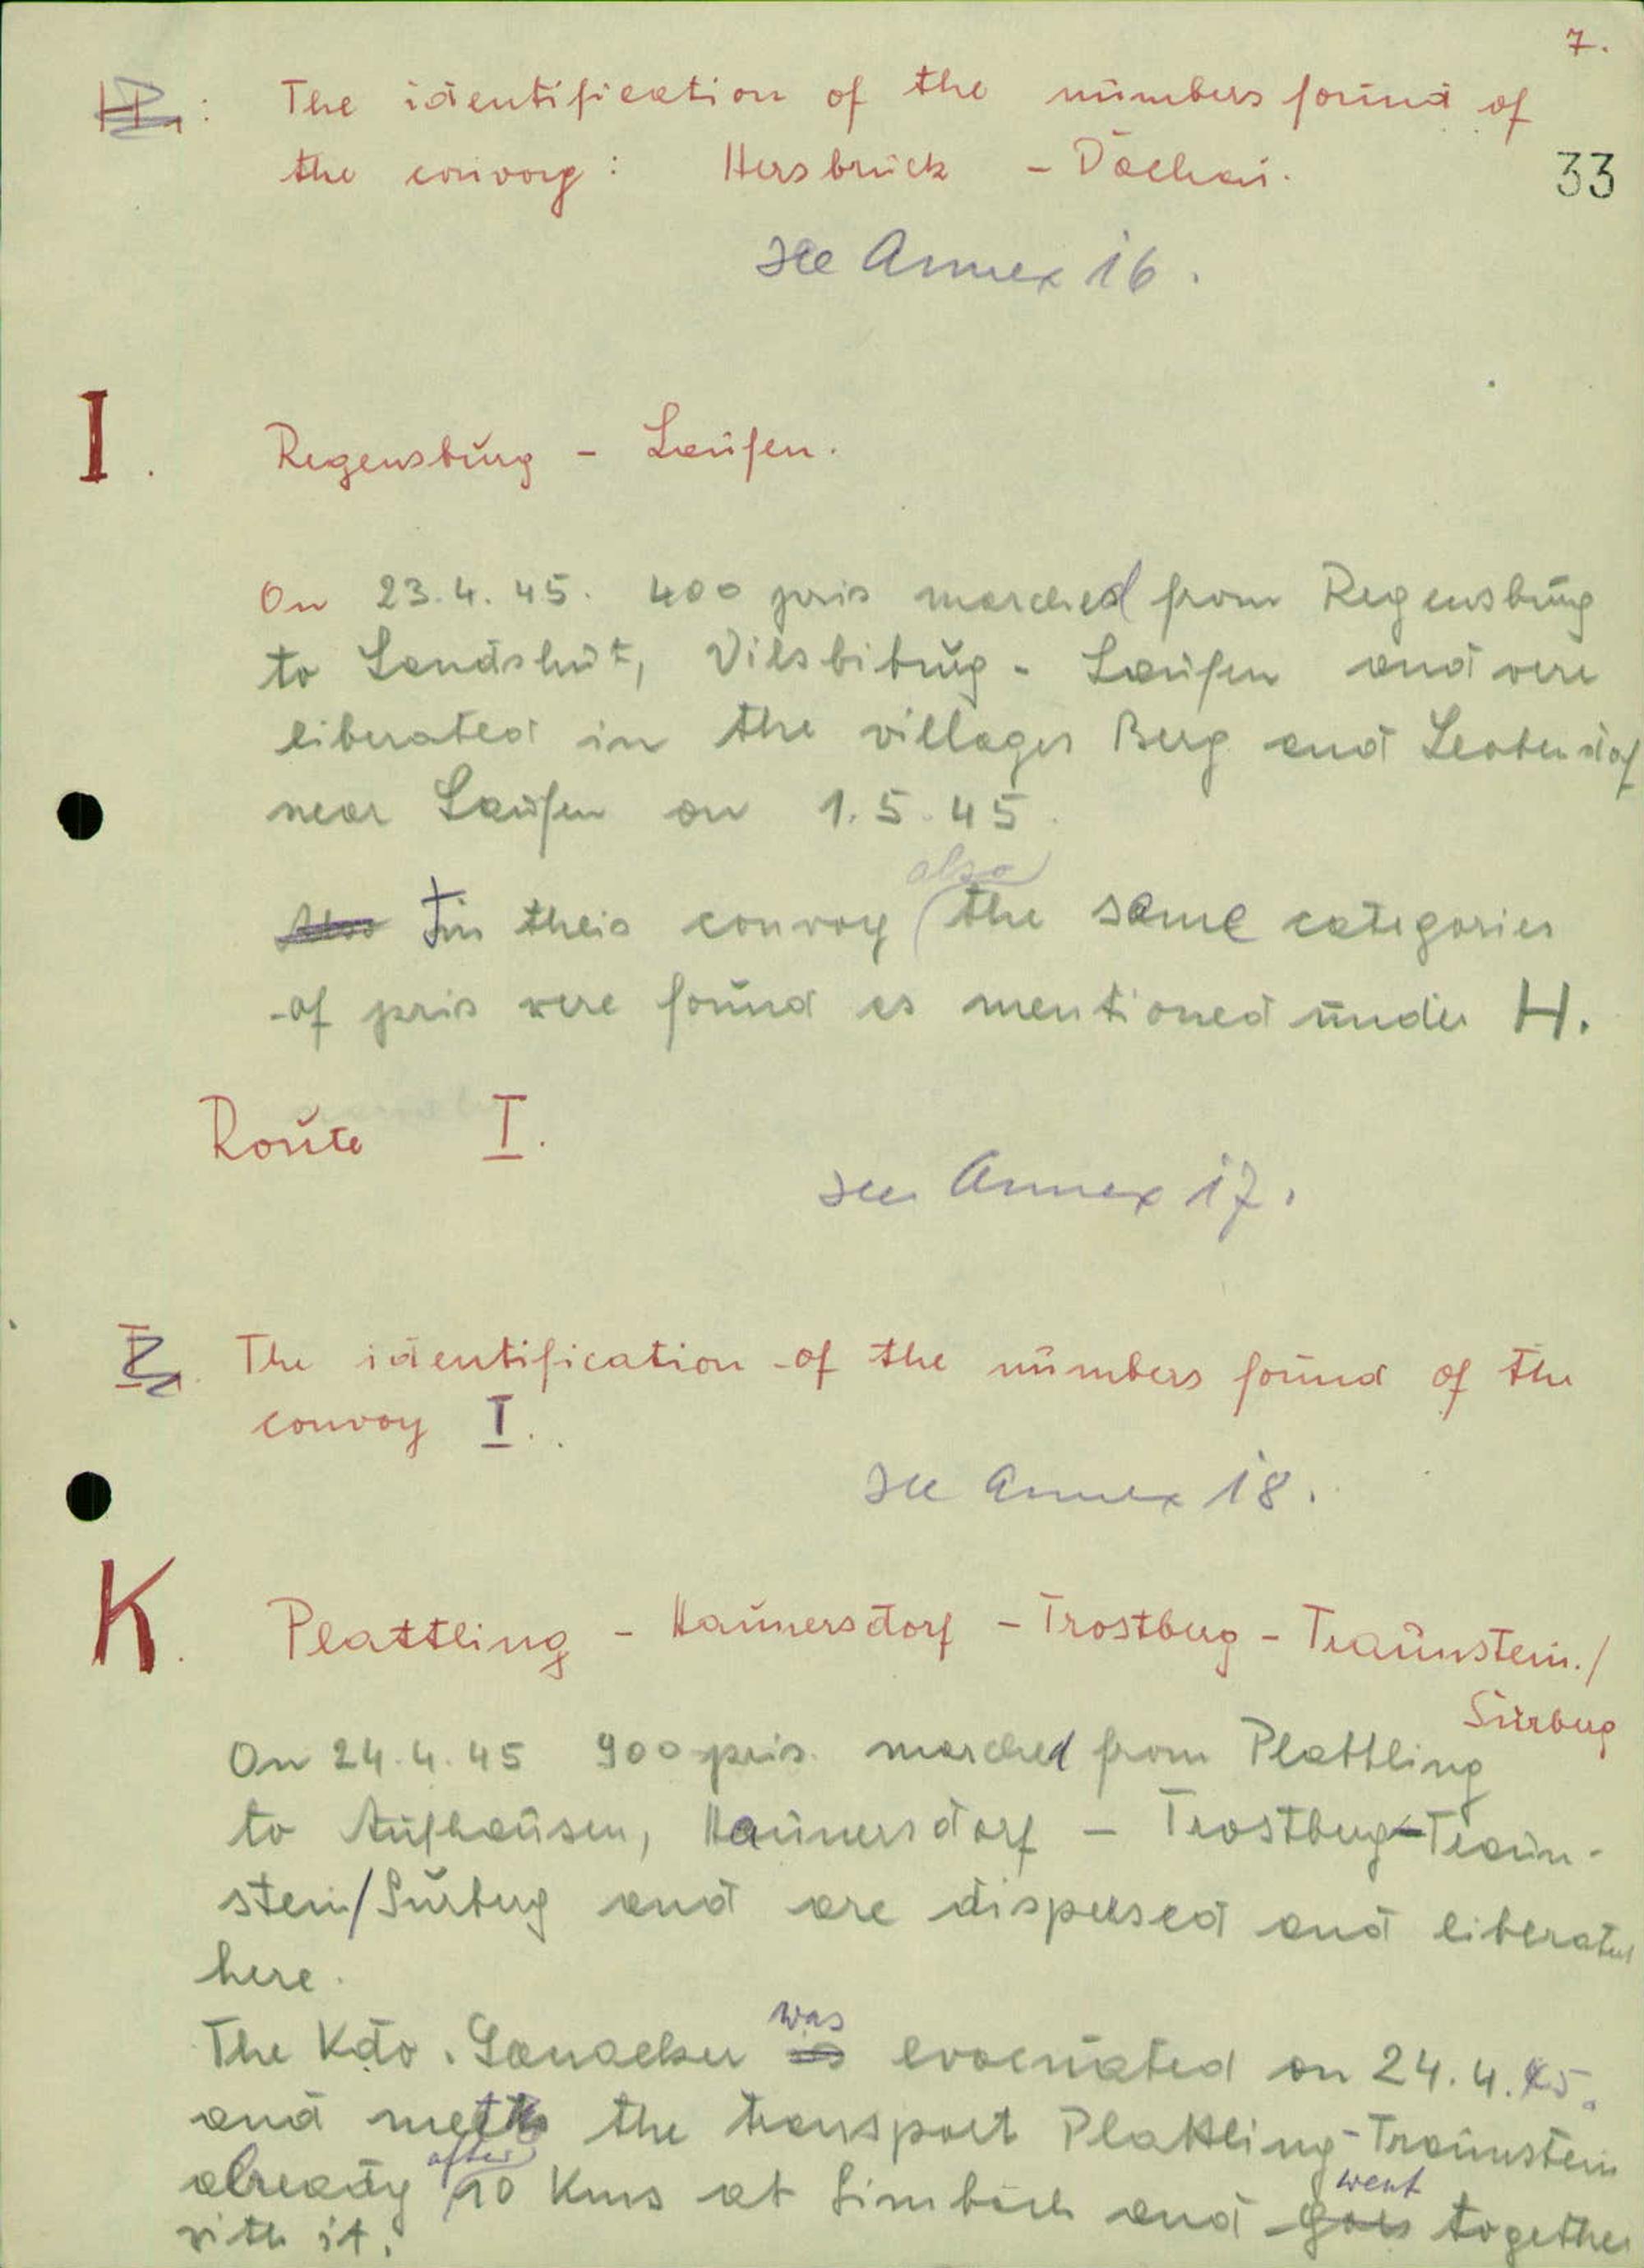 7.
The identification of the numbers found of
the convoy: Hersbruck - Dachau.
33
see Annex 16.
I. Regensburg - Laufen.
On 23.4.45. 400 pris marched from Regensburg
to Landshut, Vilsbibrug - Laufen and vere
liberated in the villages Berg and
near Laufen on 1.5.45.
also
Also In theis convoy the same categories
of pris vere found as mentioned under H.
Route I.
see Annex 17.
The identification of the numbers found of the
convoy I.
see Annex 18.
K. Plattling - Haunersdorf - Trostbug - Traunstein./
Surbug
On 24.4.45 900 pris. marched from Plattling
to Aufhausen, Haunersdorf - Trostbug-Traun-
stein/Surbug and are dispersed and liberated
here.
was
The Kdo. Ganacker is evacuated on 24.4.45.
and the transport Plattling-Traunstein
after
already 10 Kms at Simbach and
went
goes together
vith it.